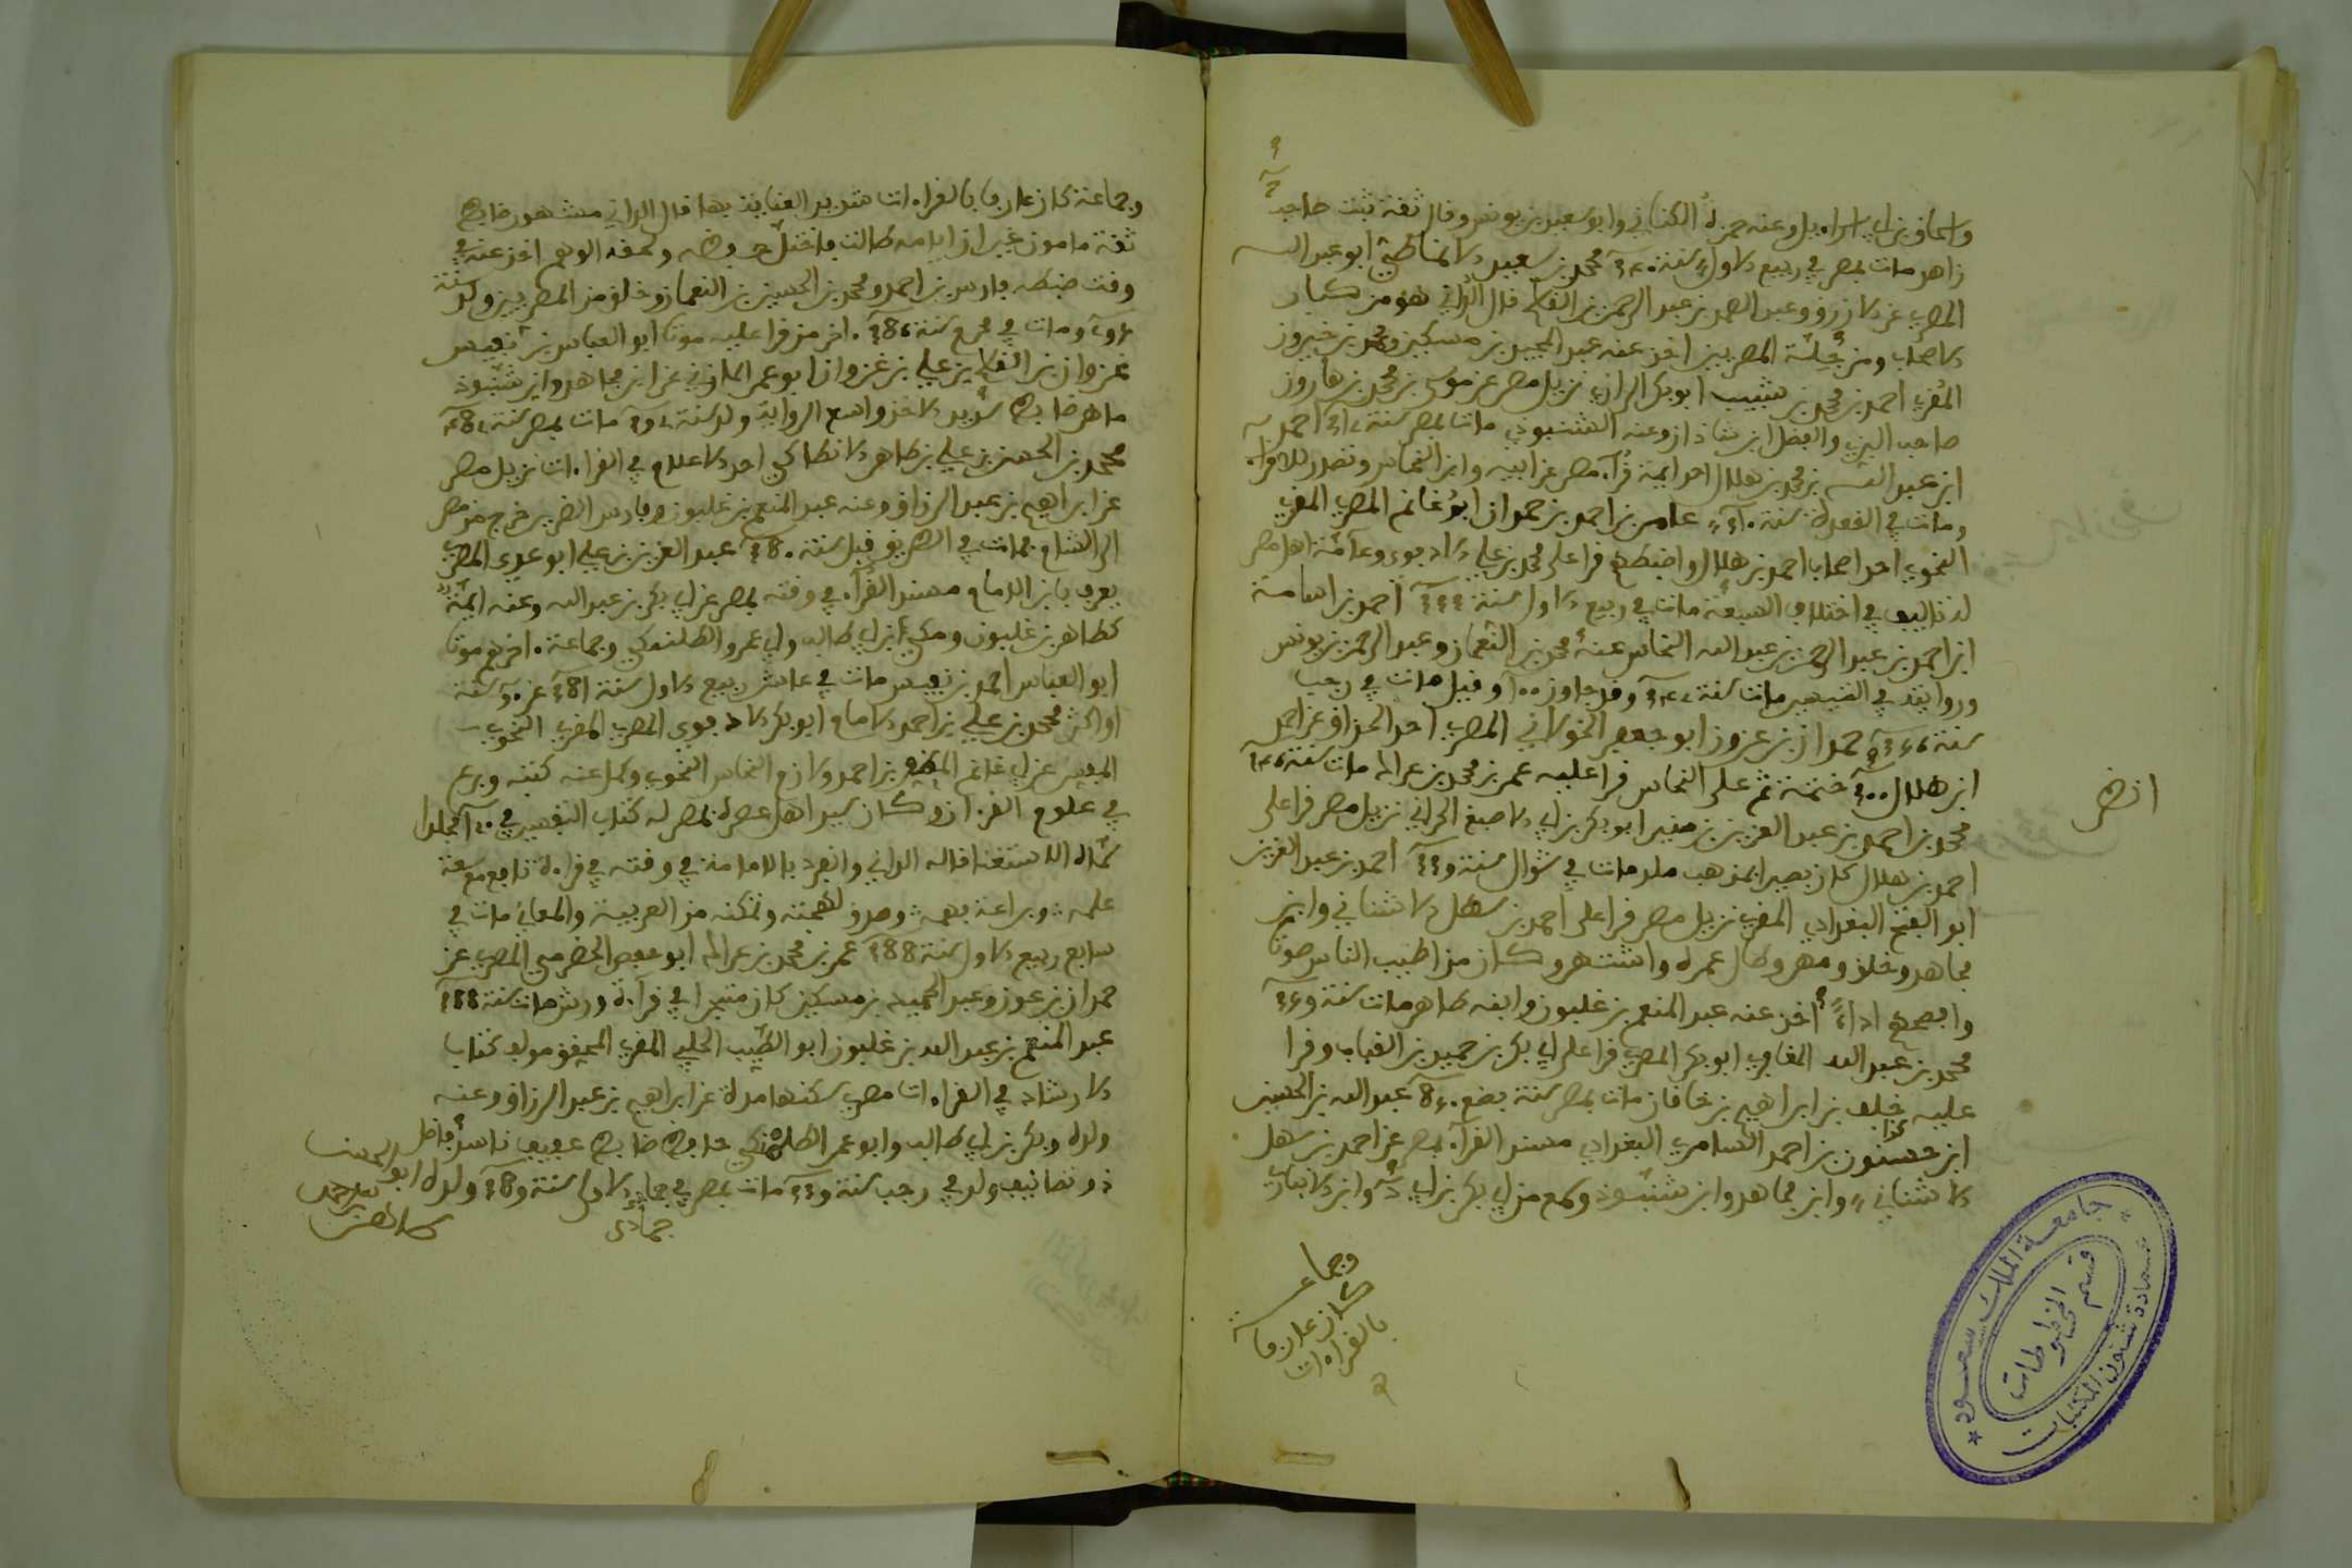 واسحاق بن ابي اسراءيل وعنه حمزة الكناني وابو سعيد بن يونس وقال ثقة ثبت صاحب
زاهد مات بمصر في ربيع الاول سنة محمد بن سعيد الانماطي ابو عبد الله
المصري عن الازرق وعبد الصمد بن عبد الرحمن بن القسم قال الداني هو من كبار
الاصحاب ومن جلة المصريين اخذ عنه عبد المجيد بن مسكين ومحمد بن خيرون
المقري احمد بن محمد بن شبيب ابو بكر الرازي نزيل مصر عن موسى بن محمد بن هارون
صاحب البزي والفضل ابن شاذان وعنه الشنبوذي مات بمصر سنة احمد
ابن عبد الله بن محمد بن هلال احد ايمة قرآء مصر عن ابيه وابن النحاس وتصدر للاقراء
ومات في القعدة سنة عامر بن احمد بن حمدان ابو غانم المصري المقري
النحوي احد اصحاب احمد بن هلال واضبطهم قرا على محمد بن علي الادبوي وعامة اهل مصر
له تاليف في اختلاف السبعة مات في ربيع الاول سنة احمد بن اسامة
ابن احمد بن عبد الرحمن بن عبد الله النحاس عنه محمد بن النعمان وعبد الرحمن بن يونس
وروايته في التيسير مات سنة وقد جاوز وقيل مات في رجب
سنة حمدان بن عون ابو جعفر الخولاني المصري احد الحذاق عن احمد
ابن هلال ختمة ثم على النحاس قرا عليه عمر بن محمد بن عراك مات سنة
محمد بن احمد بن عبد العزيز بن منير ابو بكر بن ابي الاصبغ الحراني نزيل مصر قرا على
احمد بن هلال كان بصيرا بمذهب ملك مات في شوال سنة احمد بن عبد العزيز
ابو الفتح البغدادي المقري نزيل مصر قرا على احمد بن سهل الاشناني وابن
مجاهد وخلق ومهر وطال عمره واشتهر وكان من اطيب الناس صوتا
وافصحهم اداء اخذ عنه عبد المنعم بن غلبون وابنه طاهر مات سنة
محمد بن عبد الله المعافري ابو بكر المصري قرا على ابي بكر بن حميد بن القباب وقرا
عليه خلف بن ابراهيم بن خاقان مات بمصر سنة بضع عبد الله بن الحسين
ابن حسنون بن احمد السامري البغدادي مسند القرآء بمصر عن احمد بن سهل
الاشناني وابن مجاهد وابن شنبوذ وسمع من ابي بكر بن ابي وابن الانباري
انظر
وجماعة
كان عارفا
بالقراءات
جامعة الملك سعود
عمادة شئون المكتبات
قسم المخطوطات
وجماعة كان عارفا بالقراءات شديد العناية بها قال الداني مشهور ضابط
ثقة مامون غير ان ايامه طالت فاختل حفظه ولحقه الوهم اخذ عنه في
وقت ضبطه فارس بن احمد ومحمد بن الحسين بن النعمان وخلق من المصريين ولد سنة
ومات في محرم سنة اخر من قرا عليه موتا ابو العباس بن نفيس
غزوان بن القسم بن علي بن غزوان ابو عمر المازني عن ابن مجاهد وابن شنبوذ
ماهر ضابط شديد الاخذ واسع الرواية ولد سنة مات بمصر سنة
محمد بن الحسن بن علي بن طاهر الانطاكي احد الاعلام في القراءات نزيل مصر
عن ابراهيم بن عبد الرزاق وعنه عبد المنعم بن غلبون وفارس الضرير خرج من مصر
الى الشام فمات في الطريق قبل سنة عبد العزيز بن علي ابو عدي المصري
يعرف بابن الامام مسند القرآء في وقته بمصر عن ابي بكر بن عبد الله وعنه ايمة
كطاهر بن غلبون ومكي بن ابي طالب وابي عمرو الطلمنكي وجماعة اخرهم موتا
ابو العباس احمد بن نفيس مات في عاشر ربيع الاول سنة عن سنة
او اكثر محمد بن علي بن احمد الامام ابو بكر الادبوي المصري المقري النحوي
المفسر عن ابي غانم المظفر بن احمد ولازم النحاس النحوي وحمل عنه كتبه وبرع
في علوم القرآن وكان سيد اهل عصره بمصر له كتاب التفسير في مجلدا
سماه الاستغنا قاله الداني وانفرد بالامامة في وقته في قراءة نافع مع سعة
علمه وبراعة فهمه وصدق لهجته وتمكنه من العربية والمعاني مات في
سابع ربيع الاول سنة عمر بن محمد بن عراك ابو حفص الحضرمي المصري عن
حمدان بن عون وعبد المجيد بن مسكين كان متبحرا في قراءة ورش مات سنة
عبد المنعم بن عبد الله بن غلبون ابو الطيب الحلبي المقري المحقق مولف كتاب
الارشاد في القراءات مصري سكنها مدة عن ابراهيم بن عبد الرزاق وعنه
ولده ومكي بن ابي طالب وابو عمر الطلمنكي حافظ ضابط عفيف ناسك فاضل
ذو تصانيف ولد في رجب سنة مات بمصر في جمادى الاولى سنة ولده ابو الحسن
جمادى